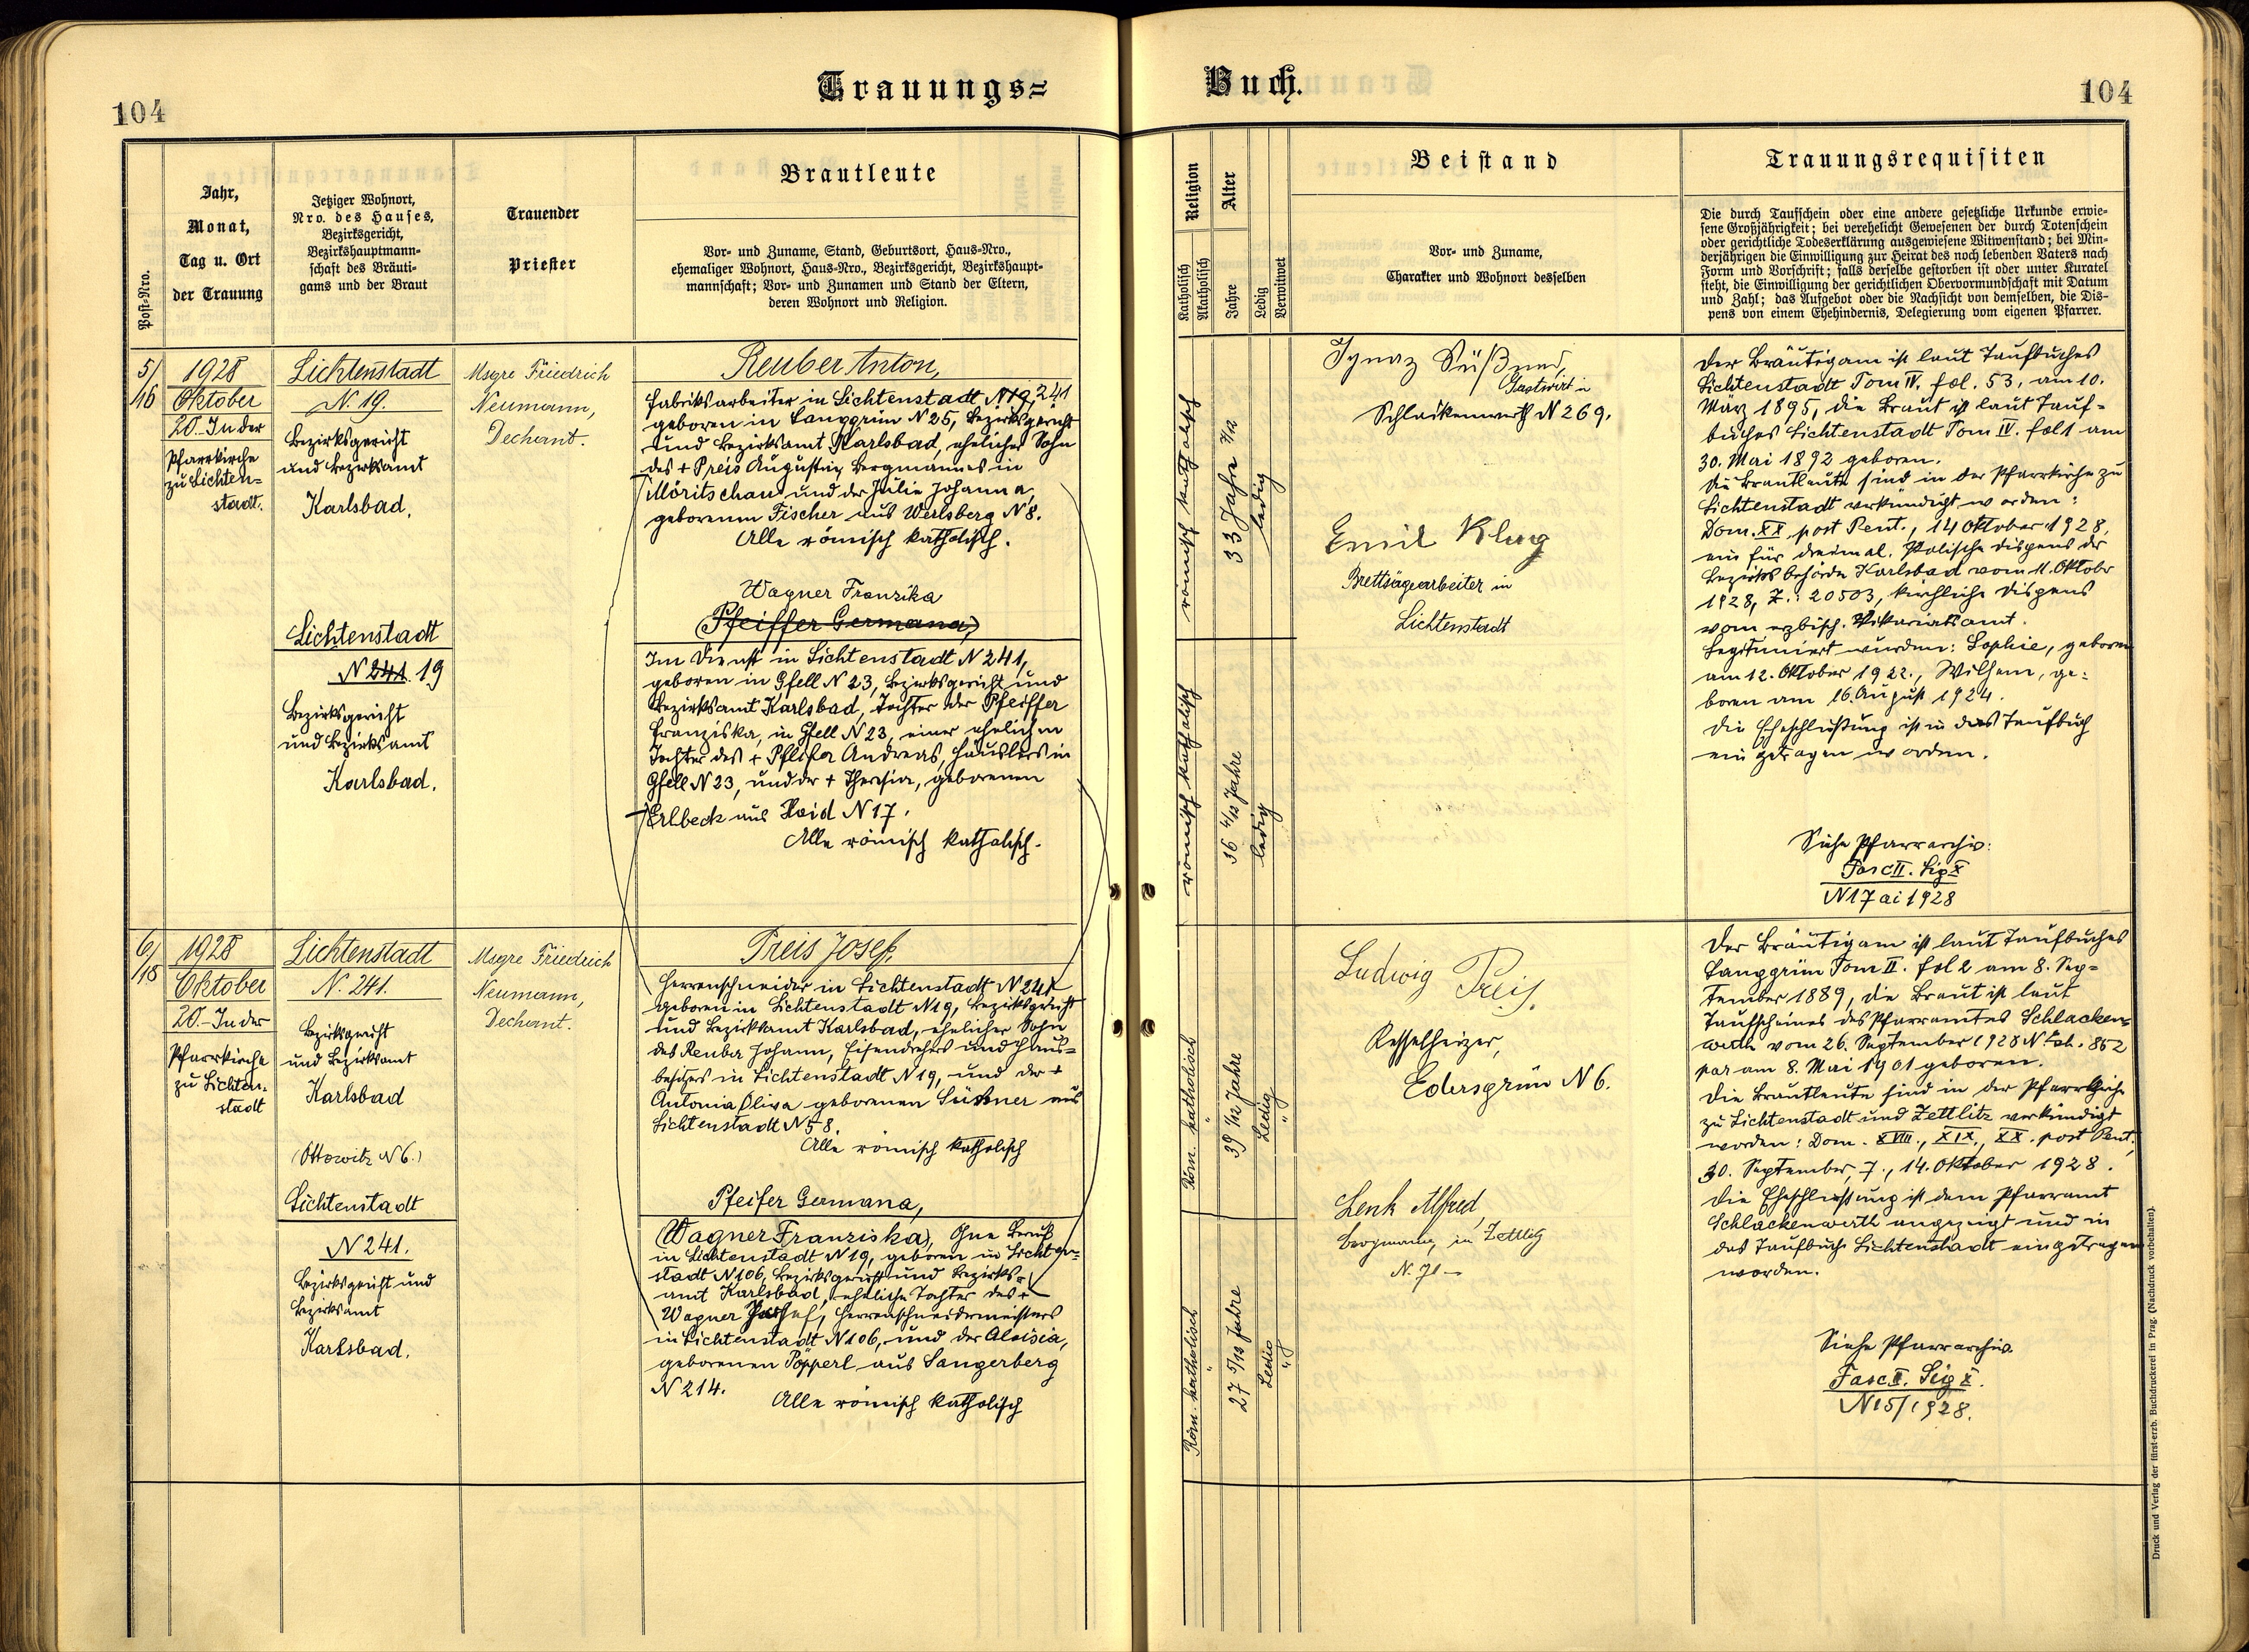 104
Trauungs=
Buch.
104
Post-Nro.
Jahr,
Monat,
Tag u. Ort
der Trauung
Jetziger Wohnort,
Nro. des Hauses,
Bezirksgericht,
Bezirkshauptmann-
schaft des Bräuti-
gams und der Braut
Trauender
Priester
Brautleute
Vor- und Zuname, Stand, Geburtsort, Haus-Nro.,
ehemaliger Wohnort, Haus-Nro., Bezirksgericht, Bezirkshaupt-
mannschaft; Vor- und Zunamen und Stand der Eltern,
deren Wohnort und Religion.
Religion
Katholisch
Akatholisch
Alter
Jahre
Ledig
Verwitwet
Beistand
Vor- und Zuname,
Charakter und Wohnort desselben
Trauungsrequisiten
Die durch Taufschein oder eine andere gesetzliche Urkunde erwie-
sene Großjährigkeit; bei verehelicht Gewesenen der durch Totenschein
oder gerichtliche Todeserklärung ausgewiesene Witwenstand; bei Min-
derjährigen die Einwilligung zur Heirat des noch lebenden Vaters nach
Form und Vorschrift; falls derselbe gestorben ist oder unter Kuratel
steht, die Einwilligung der gerichtlichen Obervormundschaft mit Datum
und Zahl; das Aufgebot oder die Nachsicht von demselben, die Dis-
pens von einem Ehehindernis, Delegierung vom eigenen Pfarrer.
5/
16
1928
Oktober
20. In der
Pfarrkirche
zu Lichten-
stadt.
Lichtenstadt
N. 19.
Bezirksgericht
und Bezirksamt
Karlsbad.
Lichtenstadt
N 241. 19
Bezirksgericht
und Bezirksamt
Karlsbad.
Msgre Friedrich
Neumann,
Dechant.
Reuber Anton,
Fabriksarbeiter in Lichtenstadt N 19, 241
geboren in Langgrün N 25, Bezirksgericht
und Bezirksamt Karlsbad, ehelicher Sohn
des + Preis Augustin, Bergmannes in
Möritschau und der Julie Johanna,
geborenen Fischer aus Werlsberg N 8.
Alle römisch katholisch.
Wagner Franzika
(Pfeiffer Germana,)
Im Dienst in Lichtenstadt N 241,
geboren in Gfell N 23, Bezirksgericht und
Bezirksamt Karlsbad, Tochter der Pfeiffer
Franziska, in Gfell N 23, einer ehelichen
Tochter des + Pfeifer Andreas, Häuslers in
Gfell N 23, und der + Theresia, geborenen
Erlbeck aus Haid N 17.
Alle römisch katholisch.
römisch katholisch
33 Jahre 7/12
ledig
römisch katholisch
36 4/12 Jahre
ledig
Ignaz Süßner,
Gastwirt in
Schlackenwerth N 269.
Emil Klug
Brettsägearbeiter in
Lichtenstadt
Der Bräutigam ist laut Taufbuches
Lichtenstadt Tom IV. fol. 53, am 10.
März 1895, die Braut ist laut Tauf-
buches Lichtenstadt Tom IV. fol 1 am
30. Mai 1892 geboren.
Die Brautleute sind in der Pfarrkirche zu
Lichtenstadt verkündigt worden:
Dom. XX post Pent., 14 Oktober 1928,
ein für dreimal. Politische Dispens der
Bezirksbehörde Karlsbad vom 11. Oktober
1928, Z.: 20503, kirchliche Dispens
vom erzbisch. Vikariatsamt.
Legitimiert wurden: Sophie, geboren
am 12. Oktober 1922., Wilhelm, ge-
boren am 16. August 1924.
Die Eheschließung ist in das Taufbuch
eingetragen worden.
Siehe Pfarrarchiv:
Fasc II. Sig X
N 17 ai 1928
6/
18
1928
Oktober
20.- In der
Pfarrkirche
zu Lichten-
stadt
Lichtenstadt
N. 241.
Bezirksgericht
und Bezirksamt
Karlsbad
(Ottowitz N 6.)
Lichtenstadt
N 241.
Bezirksgericht und
Bezirksamt
Karlsbad.
Msgre Friedrich
Neumann,
Dechant.
Preis Josef,
Herrenschneider in Lichtenstadt N 241
geboren in Lichtenstadt N 19, Bezirksgericht
und Bezirksamt Karlsbad, ehelicher Sohn
des Reuber Johann, Eisendrehers und Haus-
besitzers in Lichtenstadt N 19, und der +
Antonia Oliva geborenen Süssner aus
Lichtenstadt N 58.
Alle römisch katholisch
Pfeifer Germana,
(Wagner Franziska), Ohne Beruf
in Lichtenstadt N 19, geboren in Lichten-
stadt N 106, Bezirksgericht und Bezirks-
amt Karlsbad, eheliche Tochter des +
Wagner Josef, Herrenschneidermeisters
in Lichtenstadt N 106, und der Aloisia,
geborenen Pöpperl aus Sangerberg
N 214.
Alle römisch katholisch
Röm. katholisch
39 1/12 Jahre
Ledig
Röm. katholisch
27 5/12 Jahre
Ledig
Ludwig Preis.
Kesselheizer,
Edersgrün N 6.
Lenk Alfred,
Bergmann, in Zettlitz
N. 71
Der Bräutigam ist laut Taufbuches
Langgrün Tom II. fol 2 am 8. Sep-
tember 1889, die Braut ist laut
Taufscheines des Pfarramtes Schlacken-
werth vom 26. September 1928 N 852
par am 8. Mai 1901 geboren.
Die Brautleute sind in der Pfarrkirche
zu Lichtenstadt und Zettlitz verkündigt
worden: Dom. XVIII., XIX., XX. post Pent.,
30. September, 7., 14. Oktober 1928.
Die Eheschliessung ist dem Pfarramt
Schlackenwerth angezeigt und in
das Taufbuch Lichtenstadt eingetragen
worden.
Siehe Pfarrarchiv.
Fasc II. Sig X.
N 15/1928.
Druck und Verlag der fürst-erzb. Buchdruckerei in Prag. (Nachdruck vorbehalten).